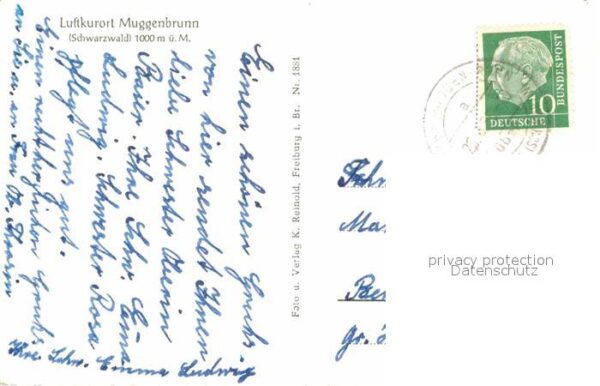 Luftkurort Muggenbrunn
(Schwarzwald) 1000 m ü. M.
Einen schönen Gruß
von hier sendet Ihnen
liebe Schwester Oberin
Ihre Schw. Emma
Ludwig. Schwester Rosa
pflegt uns gut.
Einen recht herzlichen Gruß
an Sie u. an Frau
Ihre Schw. Emma Ludwig
Foto u. Verlag K. Reinold, Freiburg i. Br. Nr. 1881
10
DEUTSCHE
BUNDESPOST
Ma
Be
gr.
privacy protection
Datenschutz